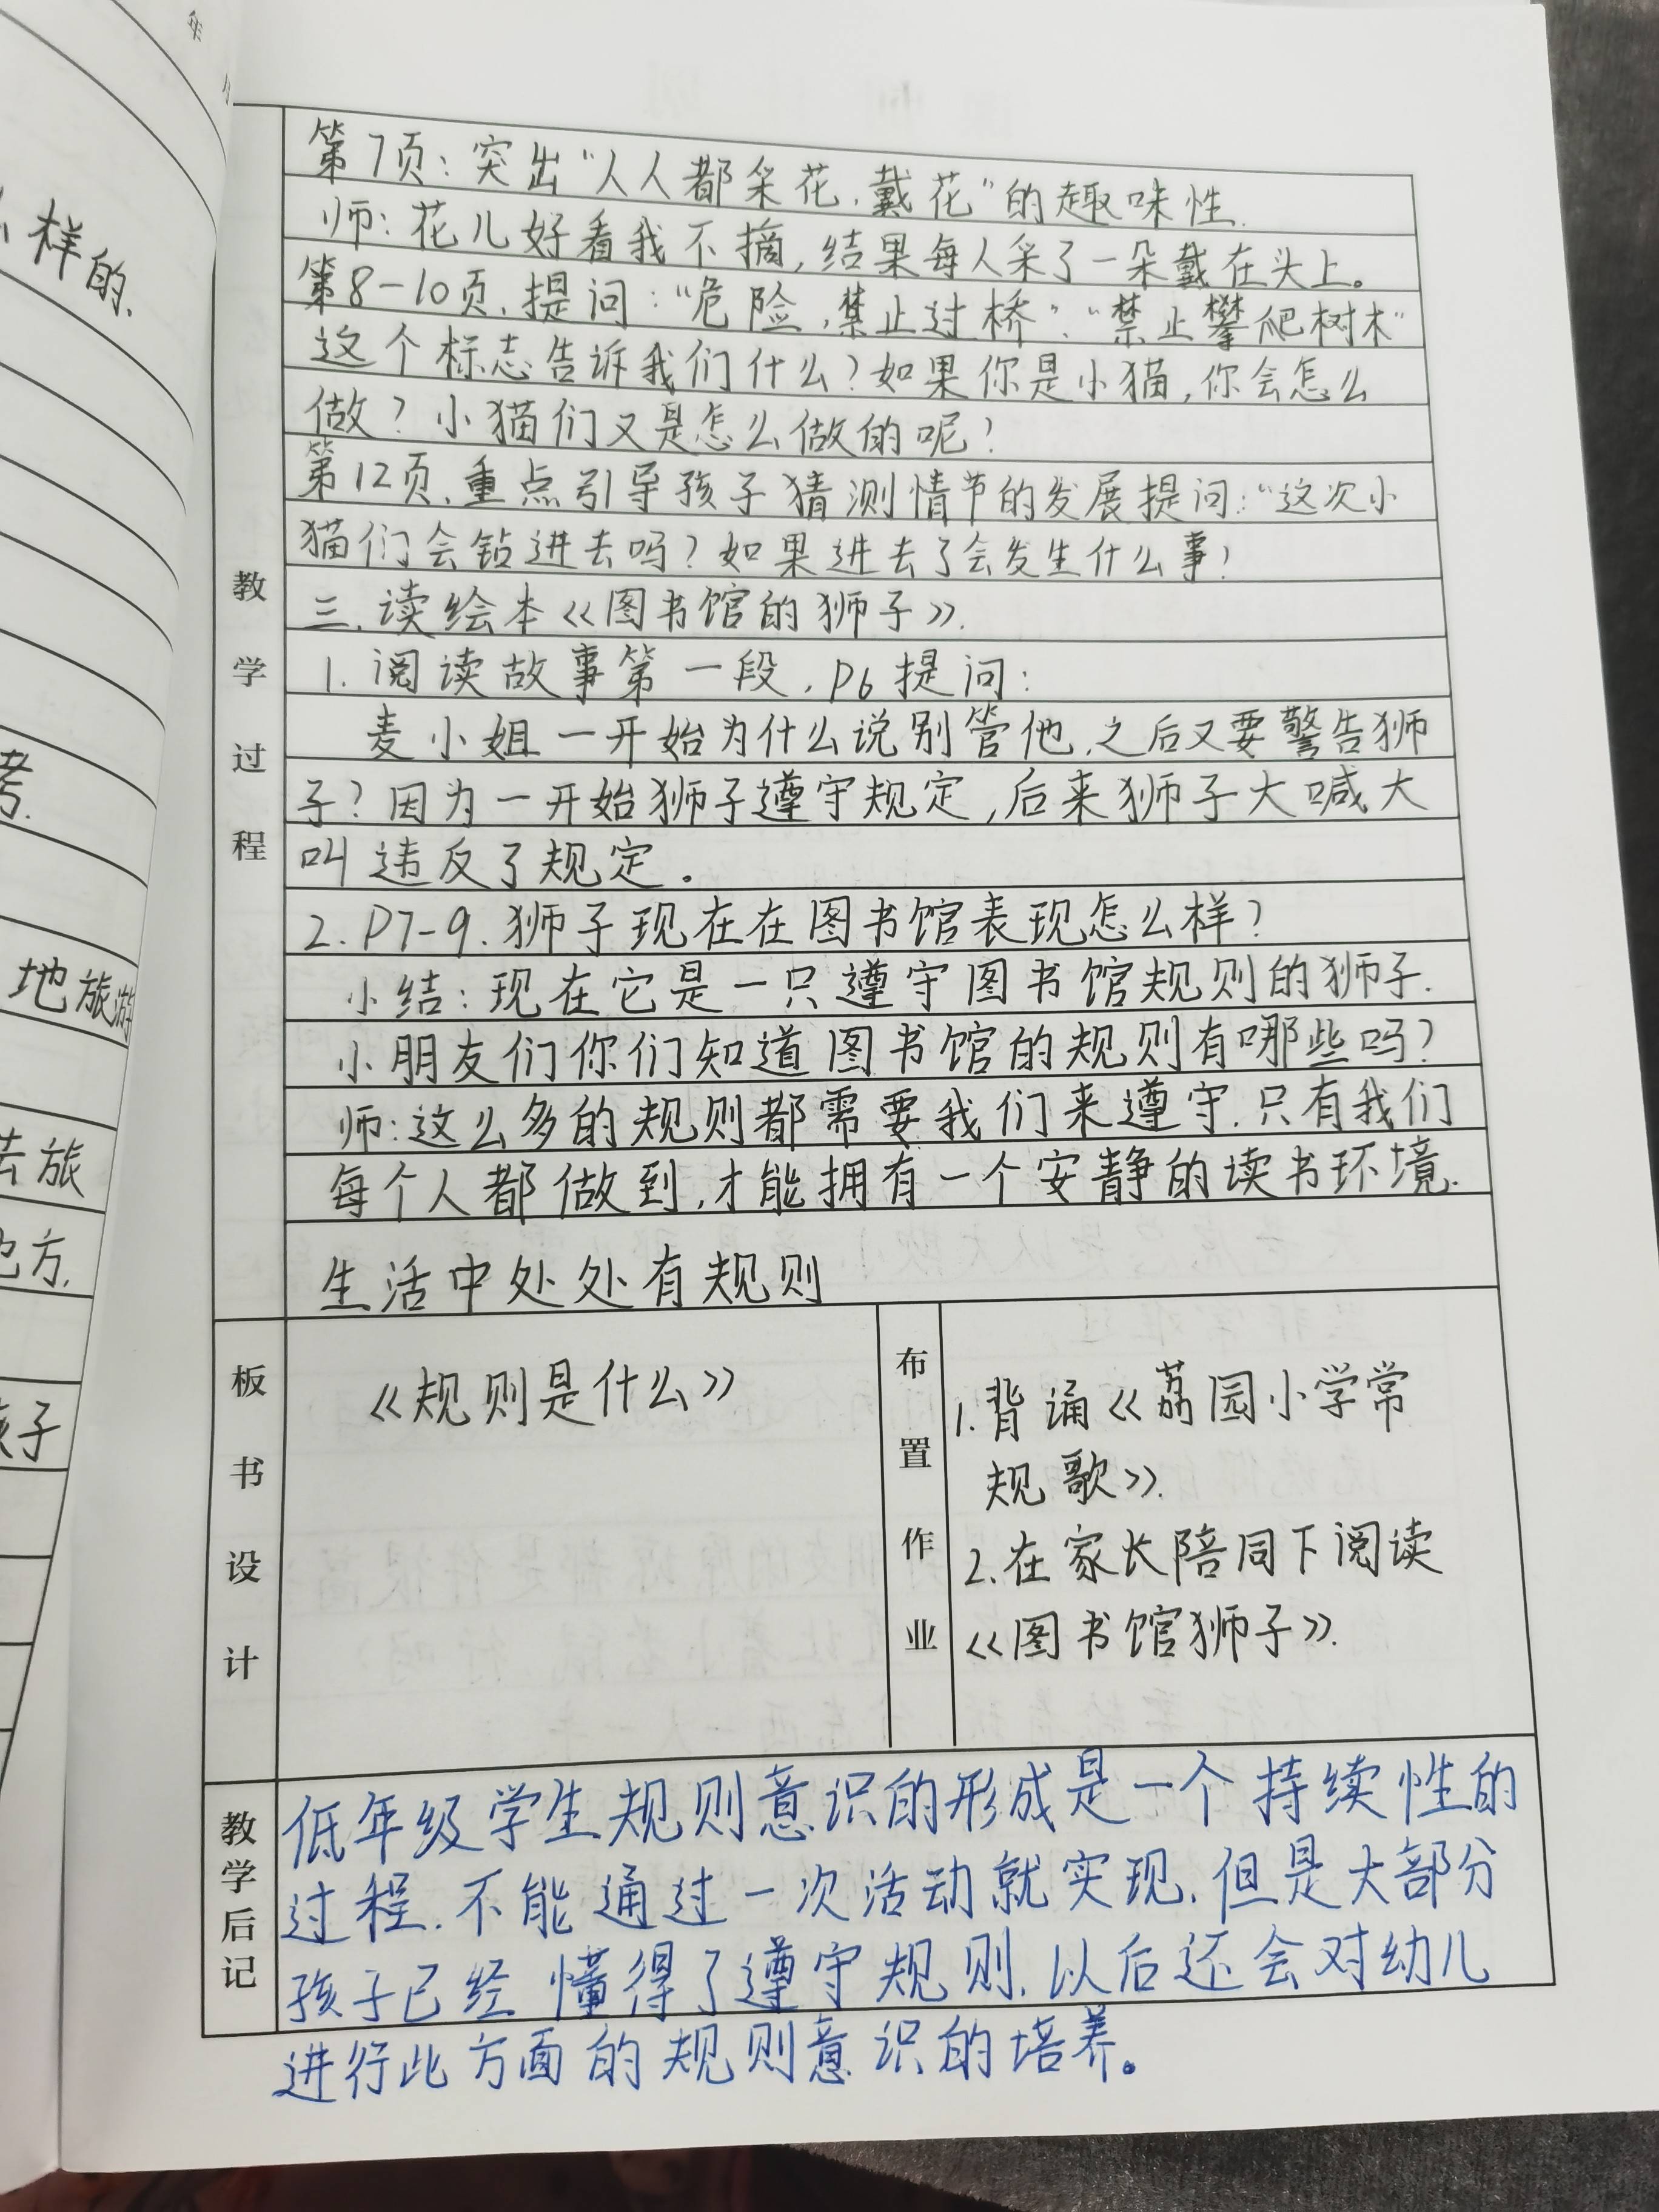 年
样的.
考.
地旅游
去旅
地方.
孩子
教学过程
第7页:突出"人人都采花,戴花"的趣味性.
师:花儿好看我不摘,结果每人采了一朵戴在头上。
第8-10页,提问:"危险,禁止过桥"."禁止攀爬树木"
这个标志告诉我们什么?如果你是小猫,你会怎么
做?小猫们又是怎么做的呢?
第12页,重点引导孩子猜测情节的发展提问:"这次小
猫们会钻进去吗?如果进去了会发生什么事?
三.读绘本《图书馆的狮子》.
1.阅读故事第一段,P6提问:
麦小姐一开始为什么说别管他,之后又要警告狮
子?因为一开始狮子遵守规定,后来狮子大喊大
叫违反了规定。
2.P7-9.狮子现在在图书馆表现怎么样?
小结:现在它是一只遵守图书馆规则的狮子.
小朋友们你们知道图书馆的规则有哪些吗?
师:这么多的规则都需要我们来遵守.只有我们
每个人都做到,才能拥有一个安静的读书环境.
生活中处处有规则
板书设计
《规则是什么》
布置作业
1.背诵《荔园小学常
规歌》.
2.在家长陪同下阅读
《图书馆狮子》.
教学后记
低年级学生规则意识的形成是一个持续性的
过程.不能通过一次活动就实现.但是大部分
孩子已经懂得了遵守规则.以后还会对幼儿
进行此方面的规则意识的培养。